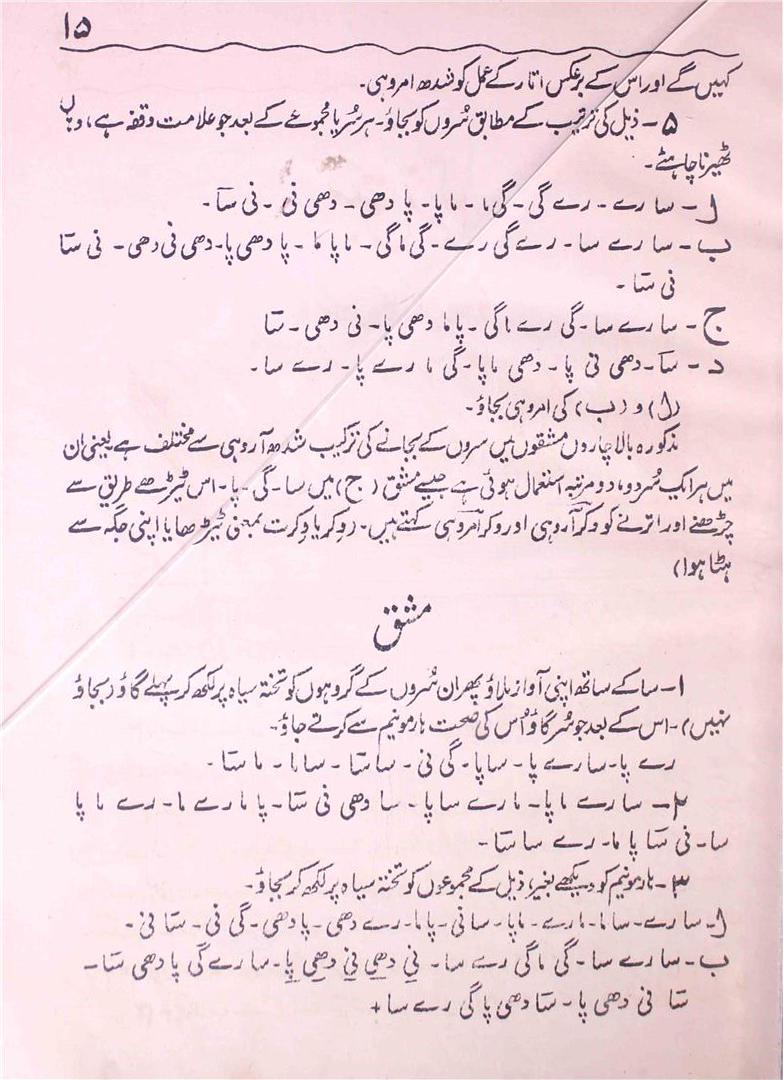 ۱۵
کہیں گے اور اس کے برعکس اتار کے عمل کو شدھ امروہی۔
۵ - ذیل کی ترتیب کے مطابق سُروں کو بجاؤ۔ ہر سُر یا مجموعے کے بعد جو علامت وقفہ ہے، وہاں
ٹھیرنا چاہئے۔
ا - سا رے - رے گی - گی ما - ما پا - پا دھی - دھی نی - نی سَا۔
ب - سا رے سا - رے گی رے - گی ما گی - ما پا ما - پا دھی پا - دھی نی دھی - نی سَا
نی سَا -
ج - سا رے سا - گی رے ما گی - پا ما دھی پا - نی دھی - سَا
د - سَا - دھی نی پا - دھی ما پا - گی ما رے پا - رے سا -
(ا) و (ب) کی امروہی بجاؤ۔
مذکورہ بالا چاروں مشقوں میں سروں کے بجانے کی ترکیب شدھ آروہی سے مختلف ہے یعنی ان
میں ہر ایک سُر دو، دو مرتبہ استعمال ہوئی ہے جیسے مشق (ج) میں سا - گی - پا - اس ٹیڑھے طریق سے
چڑھنے اور اترنے کو وکر آروہی اور وکر امروہی کہتے ہیں۔ (وکر یا وکرت بمعنی ٹیڑھا یا اپنی جگہ سے
ہٹا ہوا)
مشق
۱ - سا کے ساتھ اپنی آواز ملاؤ پھر ان سُروں کے گروہوں کو تختہ سیاہ پر لکھ کر پہلے گاؤ (بجاؤ
نہیں) - اس کے بعد جو سُر گاؤ اُس کی صحت ہارمونیم سے کرتے جاؤ۔
رے پا - سا رے پا - سا پا - گی نی - سا سَا - سا ما - ما سَا -
۲ - سا رے ما پا - ما رے سا پا - سا دھی نی سَا - پا ما رے ما - رے ما پا
سا - نی سَا پا ما - رے سا سَا -
۳ - ہارمونیم کو دیکھے بغیر، ذیل کے مجموعوں کو تختہ سیاہ پر لکھ کر بجاؤ۔
ا - سا رے - سا ما - ما رے - ما پا - سا نی - پا ما - رے دھی - پا دھی - گی نی - سَا نی -
ب - سا رے سا - گی ما گی رے سا - نِی دھِی نِی دھِی پِا - سا رے گی پا دھی سَا -
سَا نی دھی پا - سَا دھی پا گی رے سا +